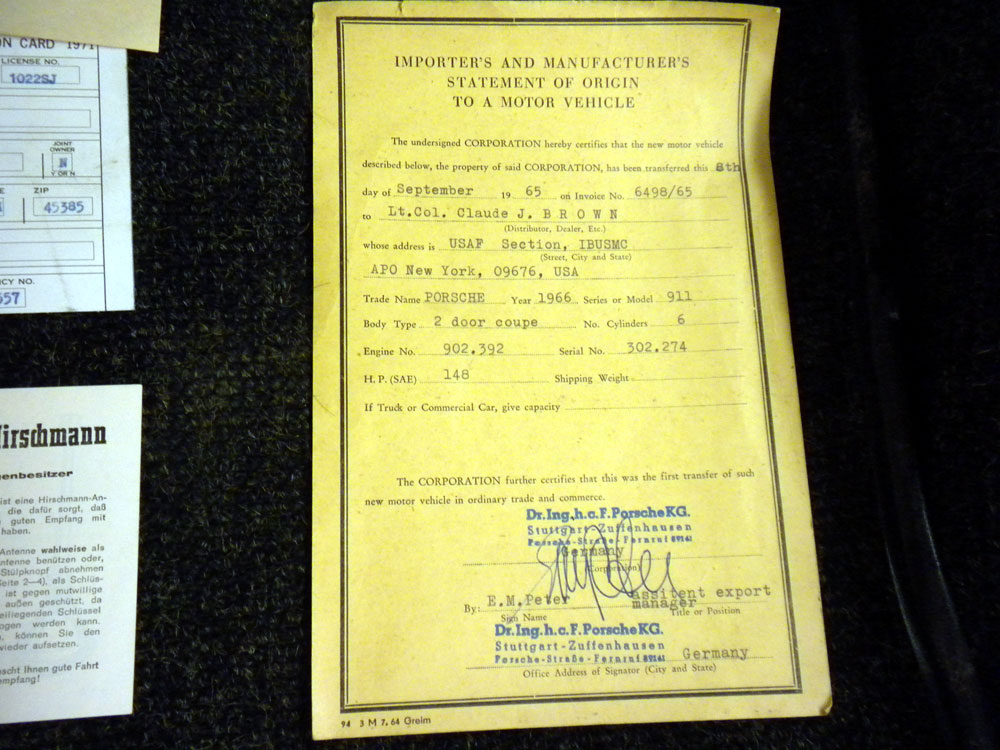 ON CARD 1971
LICENSE NO.
1022SJ
JOINT
OWNER
N
Y OR N
ZIP
45385
CY NO.
557
Hirschmann
enbesitzer
ist eine Hirschmann-An-
die dafür sorgt, daß
guten Empfang mit
haben.
Antenne wahlweise als
ntenne benützen oder,
Stülpknopf abnehmen
Seite 2—4), als Schlüs-
ist gegen mutwillige
außen geschützt, da
beiliegenden Schlüssel
ogen werden kann.
können Sie den
wieder aufsetzen.
nscht Ihnen gute Fahrt
mpfang!
IMPORTER'S AND MANUFACTURER'S
STATEMENT OF ORIGIN
TO A MOTOR VEHICLE
The undersigned CORPORATION hereby certifies that the new motor vehicle
described below, the property of said CORPORATION, has been transferred this 8th
day of September 19 65 on Invoice No. 6498/65
to Lt.Col. Claude J. B R O W N
(Distributor, Dealer, Etc.)
whose address is USAF Section, IBUSMC
(Street, City and State)
APO New York, 09676, USA
Trade Name PORSCHE Year 1966 Series or Model 911
Body Type 2 door coupe No. Cylinders 6
Engine No. 902.392 Serial No. 302.274
H. P. (SAE) 148 Shipping Weight
If Truck or Commercial Car, give capacity
The CORPORATION further certifies that this was the first transfer of such
new motor vehicle in ordinary trade and commerce.
Dr.Ing.h.c.F.PorscheKG.
Stuttgart-Zuffenhausen
Porsche-Straße-Fernruf 89161
Germany
(Corporation)
By: E.M.Peter assitent export
manager
Sign Name Title or Position
Dr.Ing.h.c.F.PorscheKG.
Stuttgart-Zuffenhausen
Porsche-Straße-Fernruf 89161 Germany
Office Address of Signator (City and State)
94 3 M 7. 64 Greim